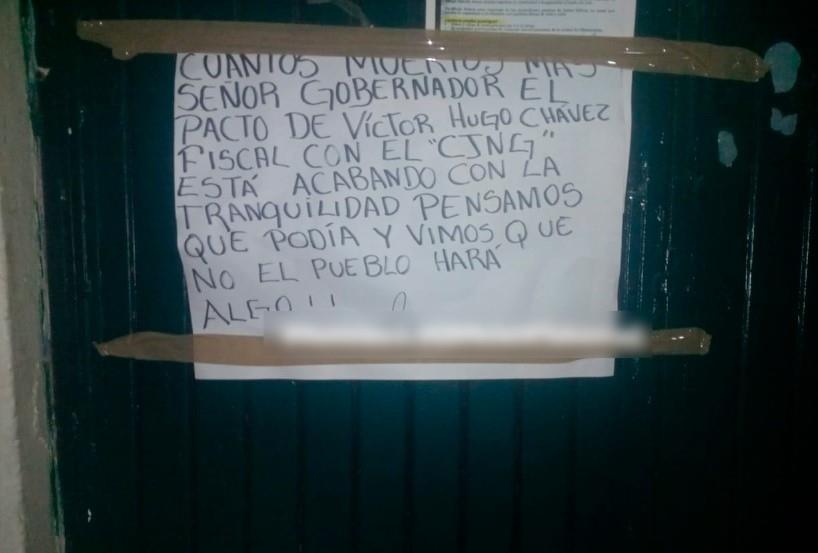 CUANTOS MUERTOS MAS
SEÑOR GOBERNADOR EL
PACTO DE VÍCTOR HUGO CHÁVEZ
FISCAL CON EL "CJNG"
ESTÁ ACABANDO CON LA
TRANQUILIDAD PENSAMOS
QUE PODÍA Y VIMOS QUE
NO EL PUEBLO HARÁ
ALGO